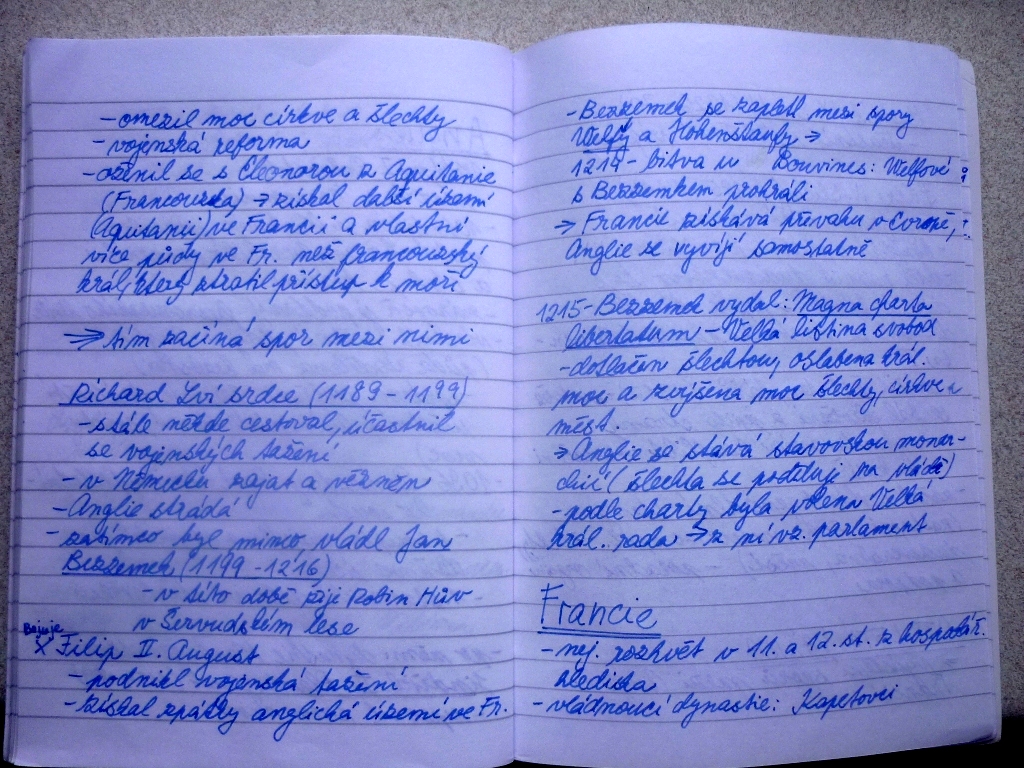 - omezil moc církve a šlechty
- vojenská reforma
- oženil se s Eleonorou z Aquitanie
(Francouzka) → získal další území
(Aquitanii) ve Francii a vlastní
více půdy ve Fr. než francouzský
král, který ztratil přístup k moři
⇒ tím začíná spor mezi nimi
Richard Lví srdce (1189 - 1199)
- stále někde cestoval, účastnil
se vojenských tažení
- v Německu zajat a vězněn
- Anglie strádá
- zatímco byl mimo, vládl Jan
Bezzemek (1199 - 1216)
- v této době žije Robin Húv
v Šervudském lese
Bojuje
x Filip II. August
- podnikl vojenská tažení
- získal zpátky anglická území ve Fr.
- Bezzemek se zapletl mezi spory
Welfy a Hohenštaufy →
1214 - bitva u Bouvines: Welfové
s Bezzemkem prohráli
→ Francie získává převahu v Evropě,
Anglie se vyvíjí samostatně
1215 - Bezzemek vydal: Magna charta
libertatum - Velká listina svobod
- dotlačen šlechtou, oslabena král.
moc a zvýšena moc šlechty, církve a
měst.
→ Anglie se stává stavovskou monar-
chií (šlechta se podílejí na vládě)
- podle charty byla volena Velká
král. rada → z ní vz. parlament
Francie
- nej. rozkvět v 11. a 12. st. z hospodář.
hlediska
- vládnoucí dynastie: Kapetovci